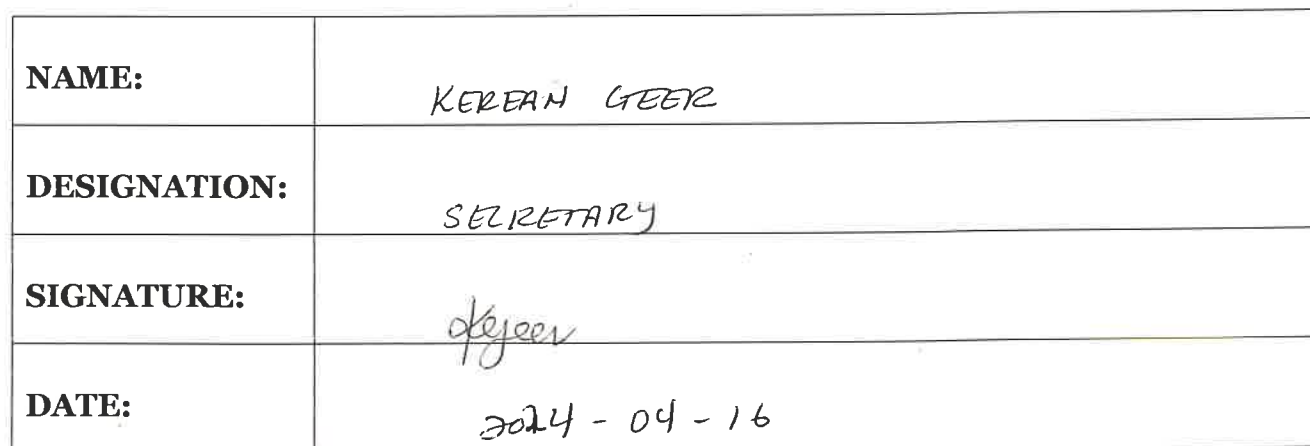 NAME: KEREAN GEER
DESIGNATION: SECRETARY
SIGNATURE: Kgeer
DATE: 2024-04-16